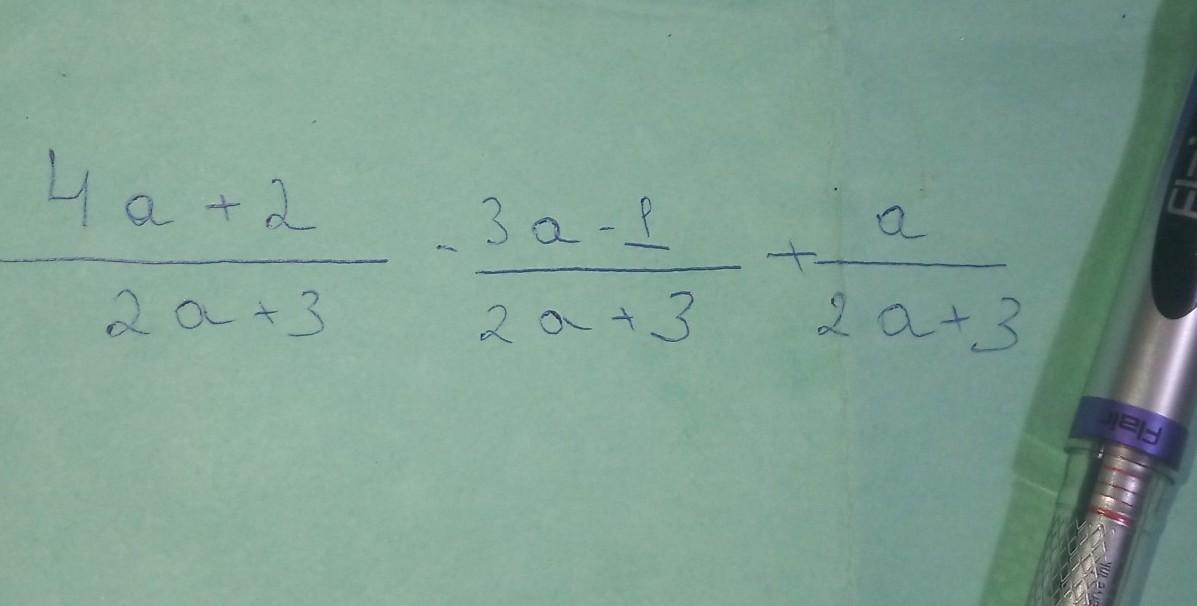 4a+2 / 2a+3 - 3a-1 / 2a+3 + a / 2a+3
Flair